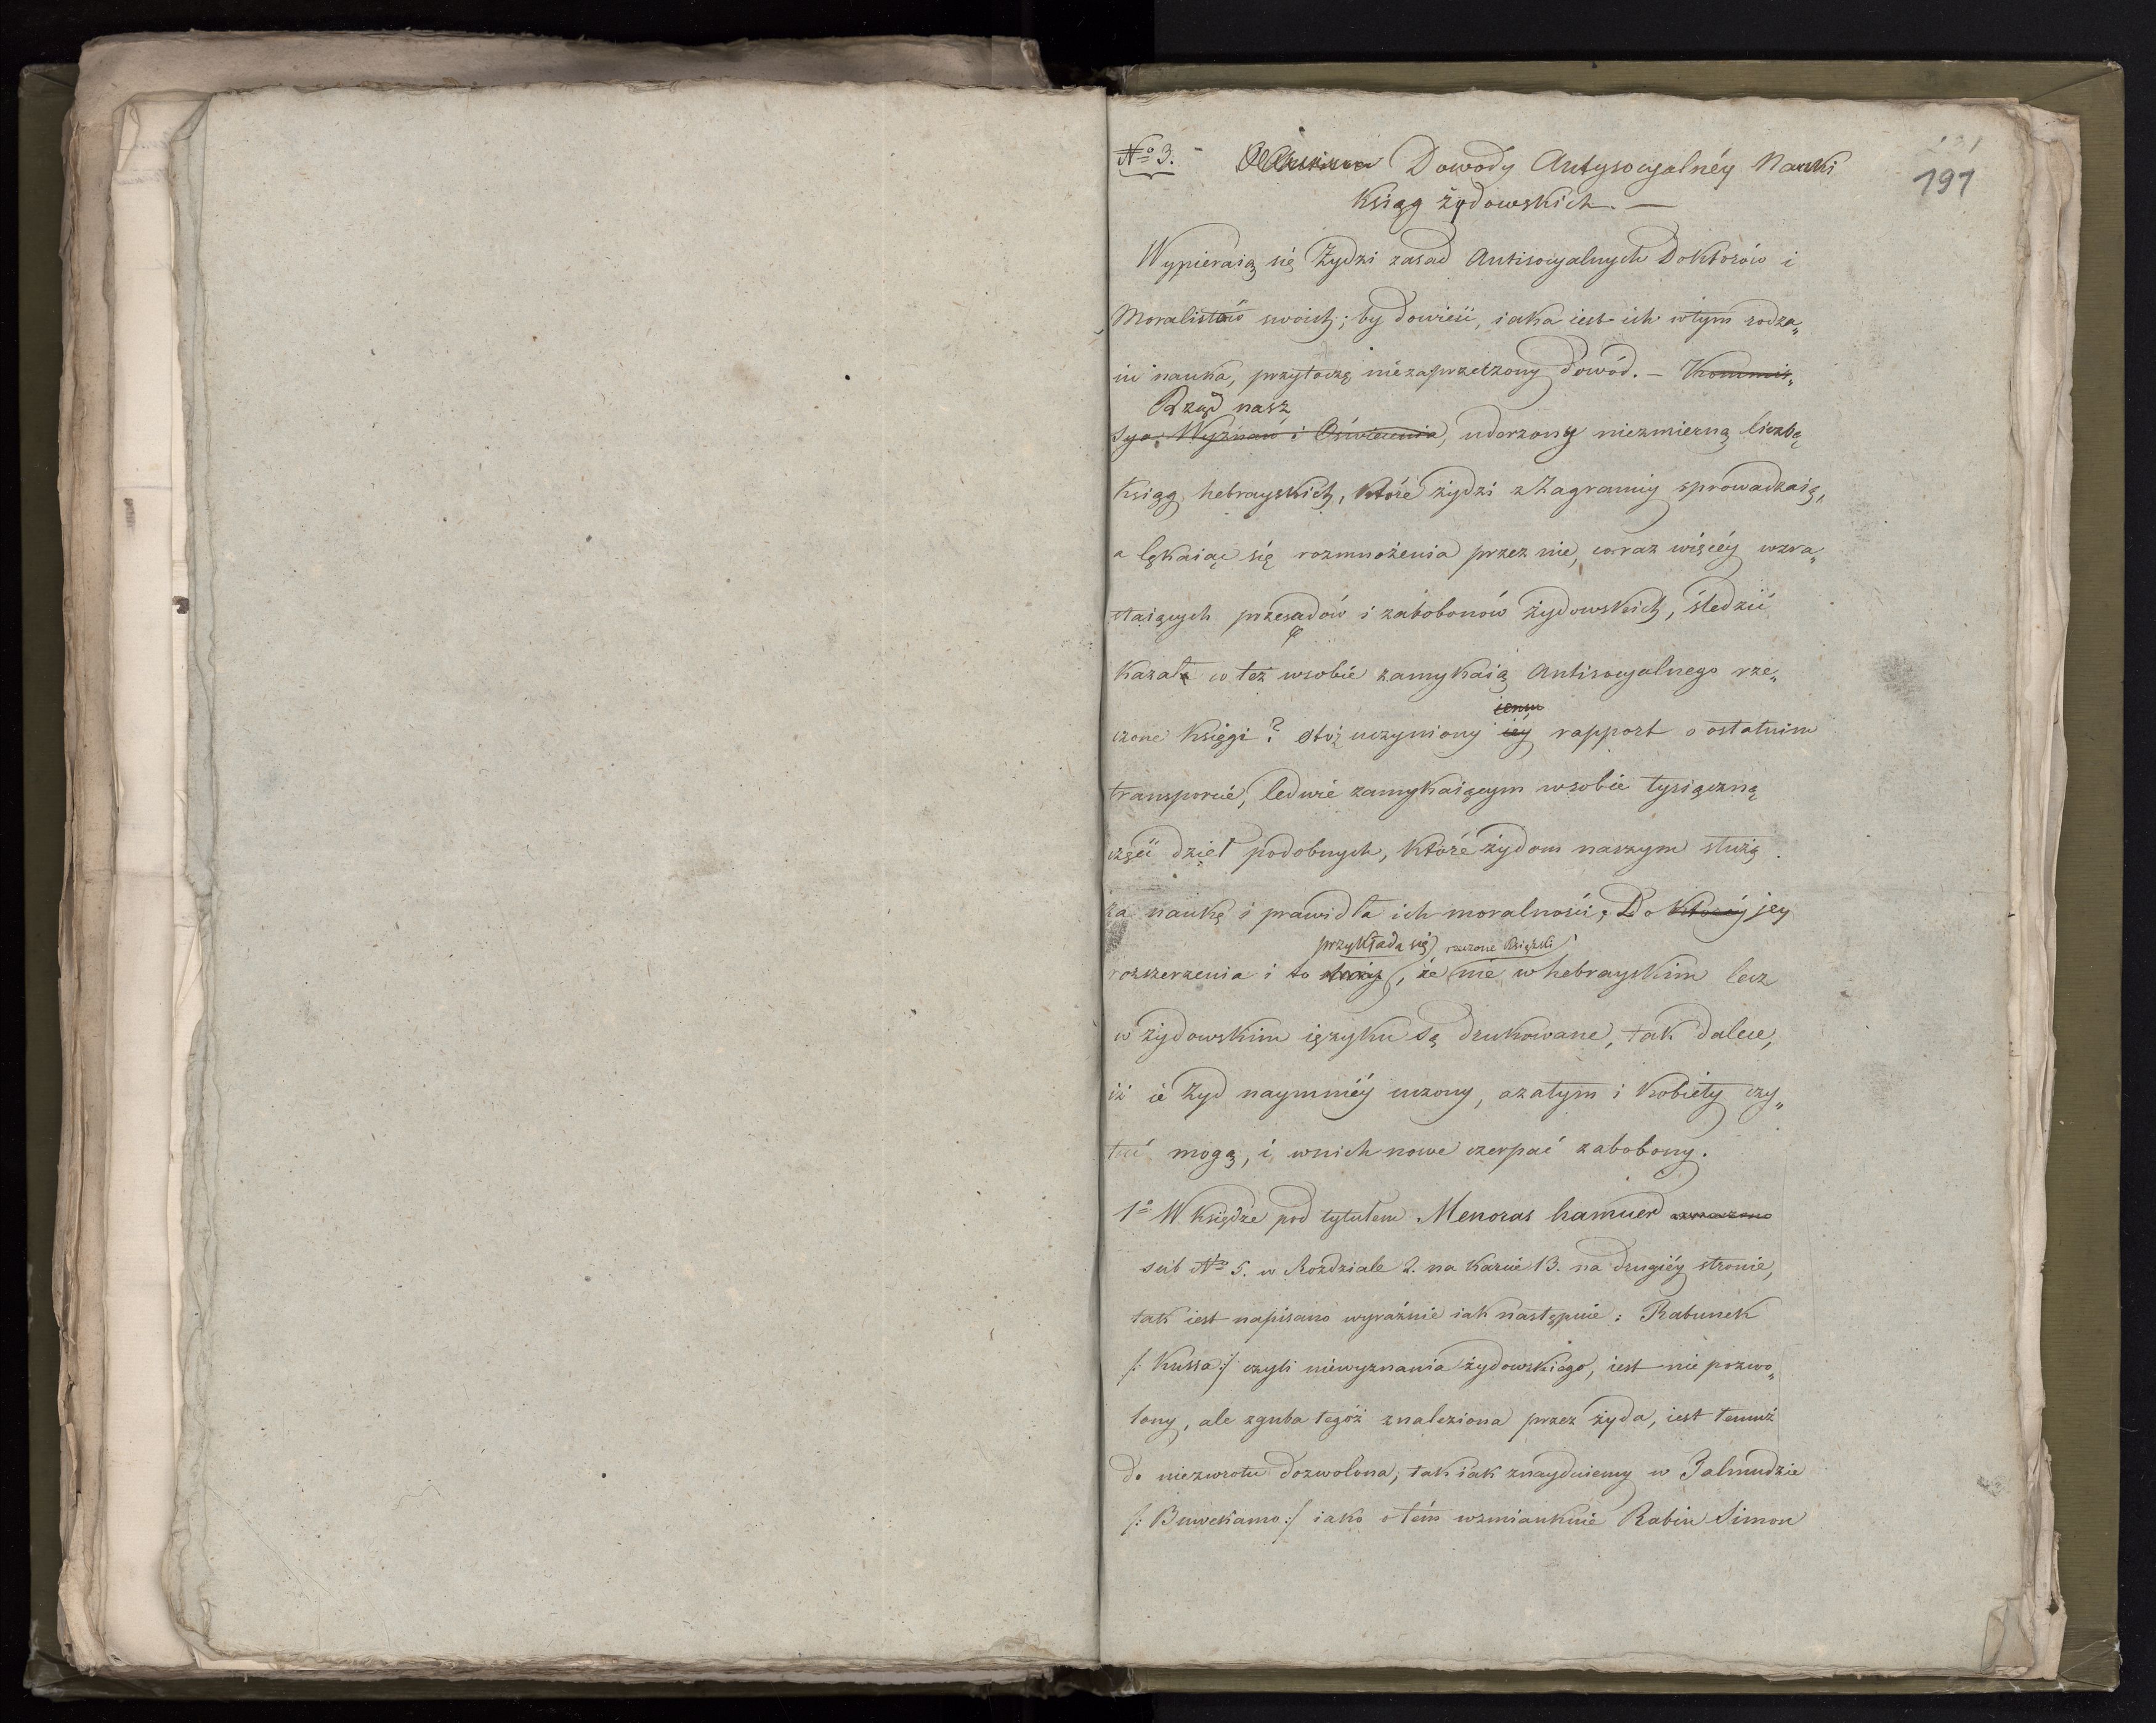 191
Nº 3. Dowody Antysocyalnéy Nauki
Ksiąg żydowskich. —
Wypieraią się Żydzi zasad Antisocyalnych Doktorów i
Moralistów swoich; by dowieść, iaka iest ich wtym rodza„
iu nauka, przytoczę niezaprzeczony dowód. — Kommis„
Rząd nasz
sya Wyznań i Oświecenia, uderzony niezmierną liczbą
Ksiąg hebrayskich, które żydzi z Zagranicy sprowadzaią,
a lękaiąc się rozmnożenia przez nie, coraz więcéy wzra„
staiących przesądów i zabobonów żydowskich, śledzić
kazał co też wsobie zamykaią Antisocyalnego rze„
iemu
czone Księgi? otóż uczyniony iéy rapport o ostatnim
transporcie, ledwie zamykaiącym wsobie tysiączną
część dzieł podobnych, które żydom naszym służą
za naukę i prawidła ich moralności; Do któréy jey
przykłada się rzeczone Książki
rozszerzenia i to służy, że nie w hebrayskim lecz
w żydowskim ięzyku są drukowane, tak dalece,
iż ie Żyd naymniéy uczony, azatym i Kobiety czy„
tać mogą, i wnich nowe czerpać zabobony.
1º W Księdze pod tytułem Menoras hamuer oznaczono
sub Nº 5. w Rozdziale 2. na karcie 13. na drugiéy stronie,
tak iest napisano wyraźnie iak następuie: Rabunek
/: Kussa :/ czyli niewyznania żydowskiego, iest nie pozwo„
lony, ale zguba tegóż znaleziona przez żyda, iest temuż
do niezwrotu dozwolona, tak iak znayduiemy w Talmudzie
/: Buwekamo :/ iako otém wzmiankuie Rabin Simon